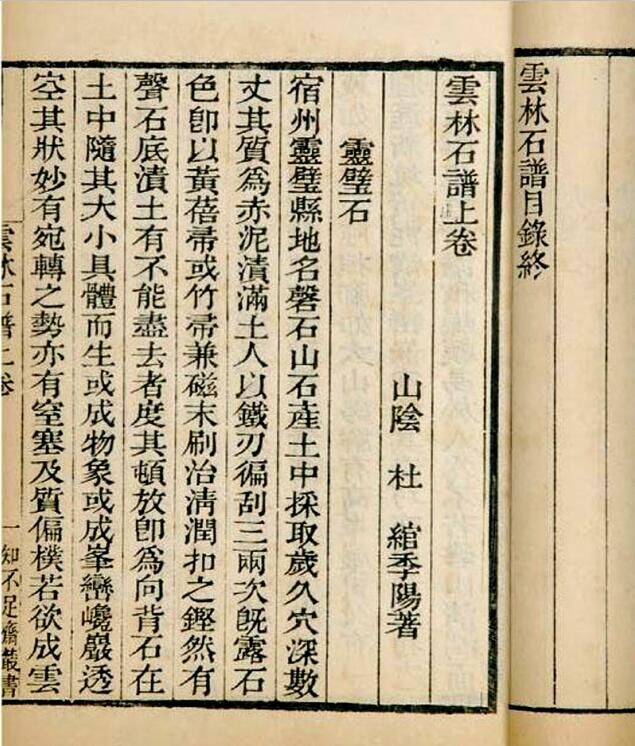 雲林石譜目錄終
雲林石譜上卷
山陰 杜 綰季陽著
靈璧石
宿州靈璧縣地名磬石山石產土中採取歲久穴深數
丈其質為赤泥漬滿土人以鐵刃徧刮三兩次既露石
色卽以黃蓓帚或竹帚兼磁末刷治淸潤扣之鏗然有
聲石底漬土有不能盡去者度其頓放卽為向背石在
土中隨其大小具體而生或成物象或成峯巒巉巖透
空其狀妙有宛轉之勢亦有窒塞及質偏樸若欲成雲
雲林石譜上卷
一
知不足齋叢書